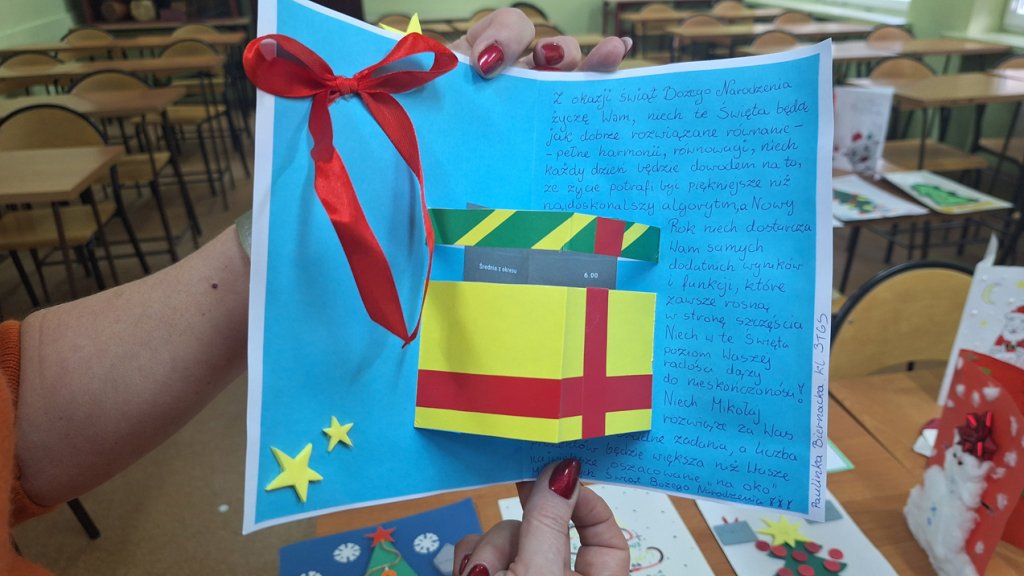 Z okazji świąt Bożego Narodzenia
życzę Wam, niech te Święta będą
jak dobrze rozwiązane równanie -
- pełne harmonii, równowagi, niech
każdy dzień będzie dowodem na to,
że życie potrafi być piękniejsze niż
najdoskonalszy algorytm, a Nowy
Rok niech dostarcza
Wam samych
dodatnich wyników
i funkcji, które
zawsze rosną
w stronę szczęścia
Niech w te Święta
poziom Waszej
radości dąży
do nieskończoności!
Niech Mikołaj
rozwiąże za Was
zadania, a liczba
będzie większa niż Wasze
oszacowanie "na oko"
Świąt Bożego Narodzenia
Średnia z okresu 6.00
Paulinka Biernacka kl 3T65